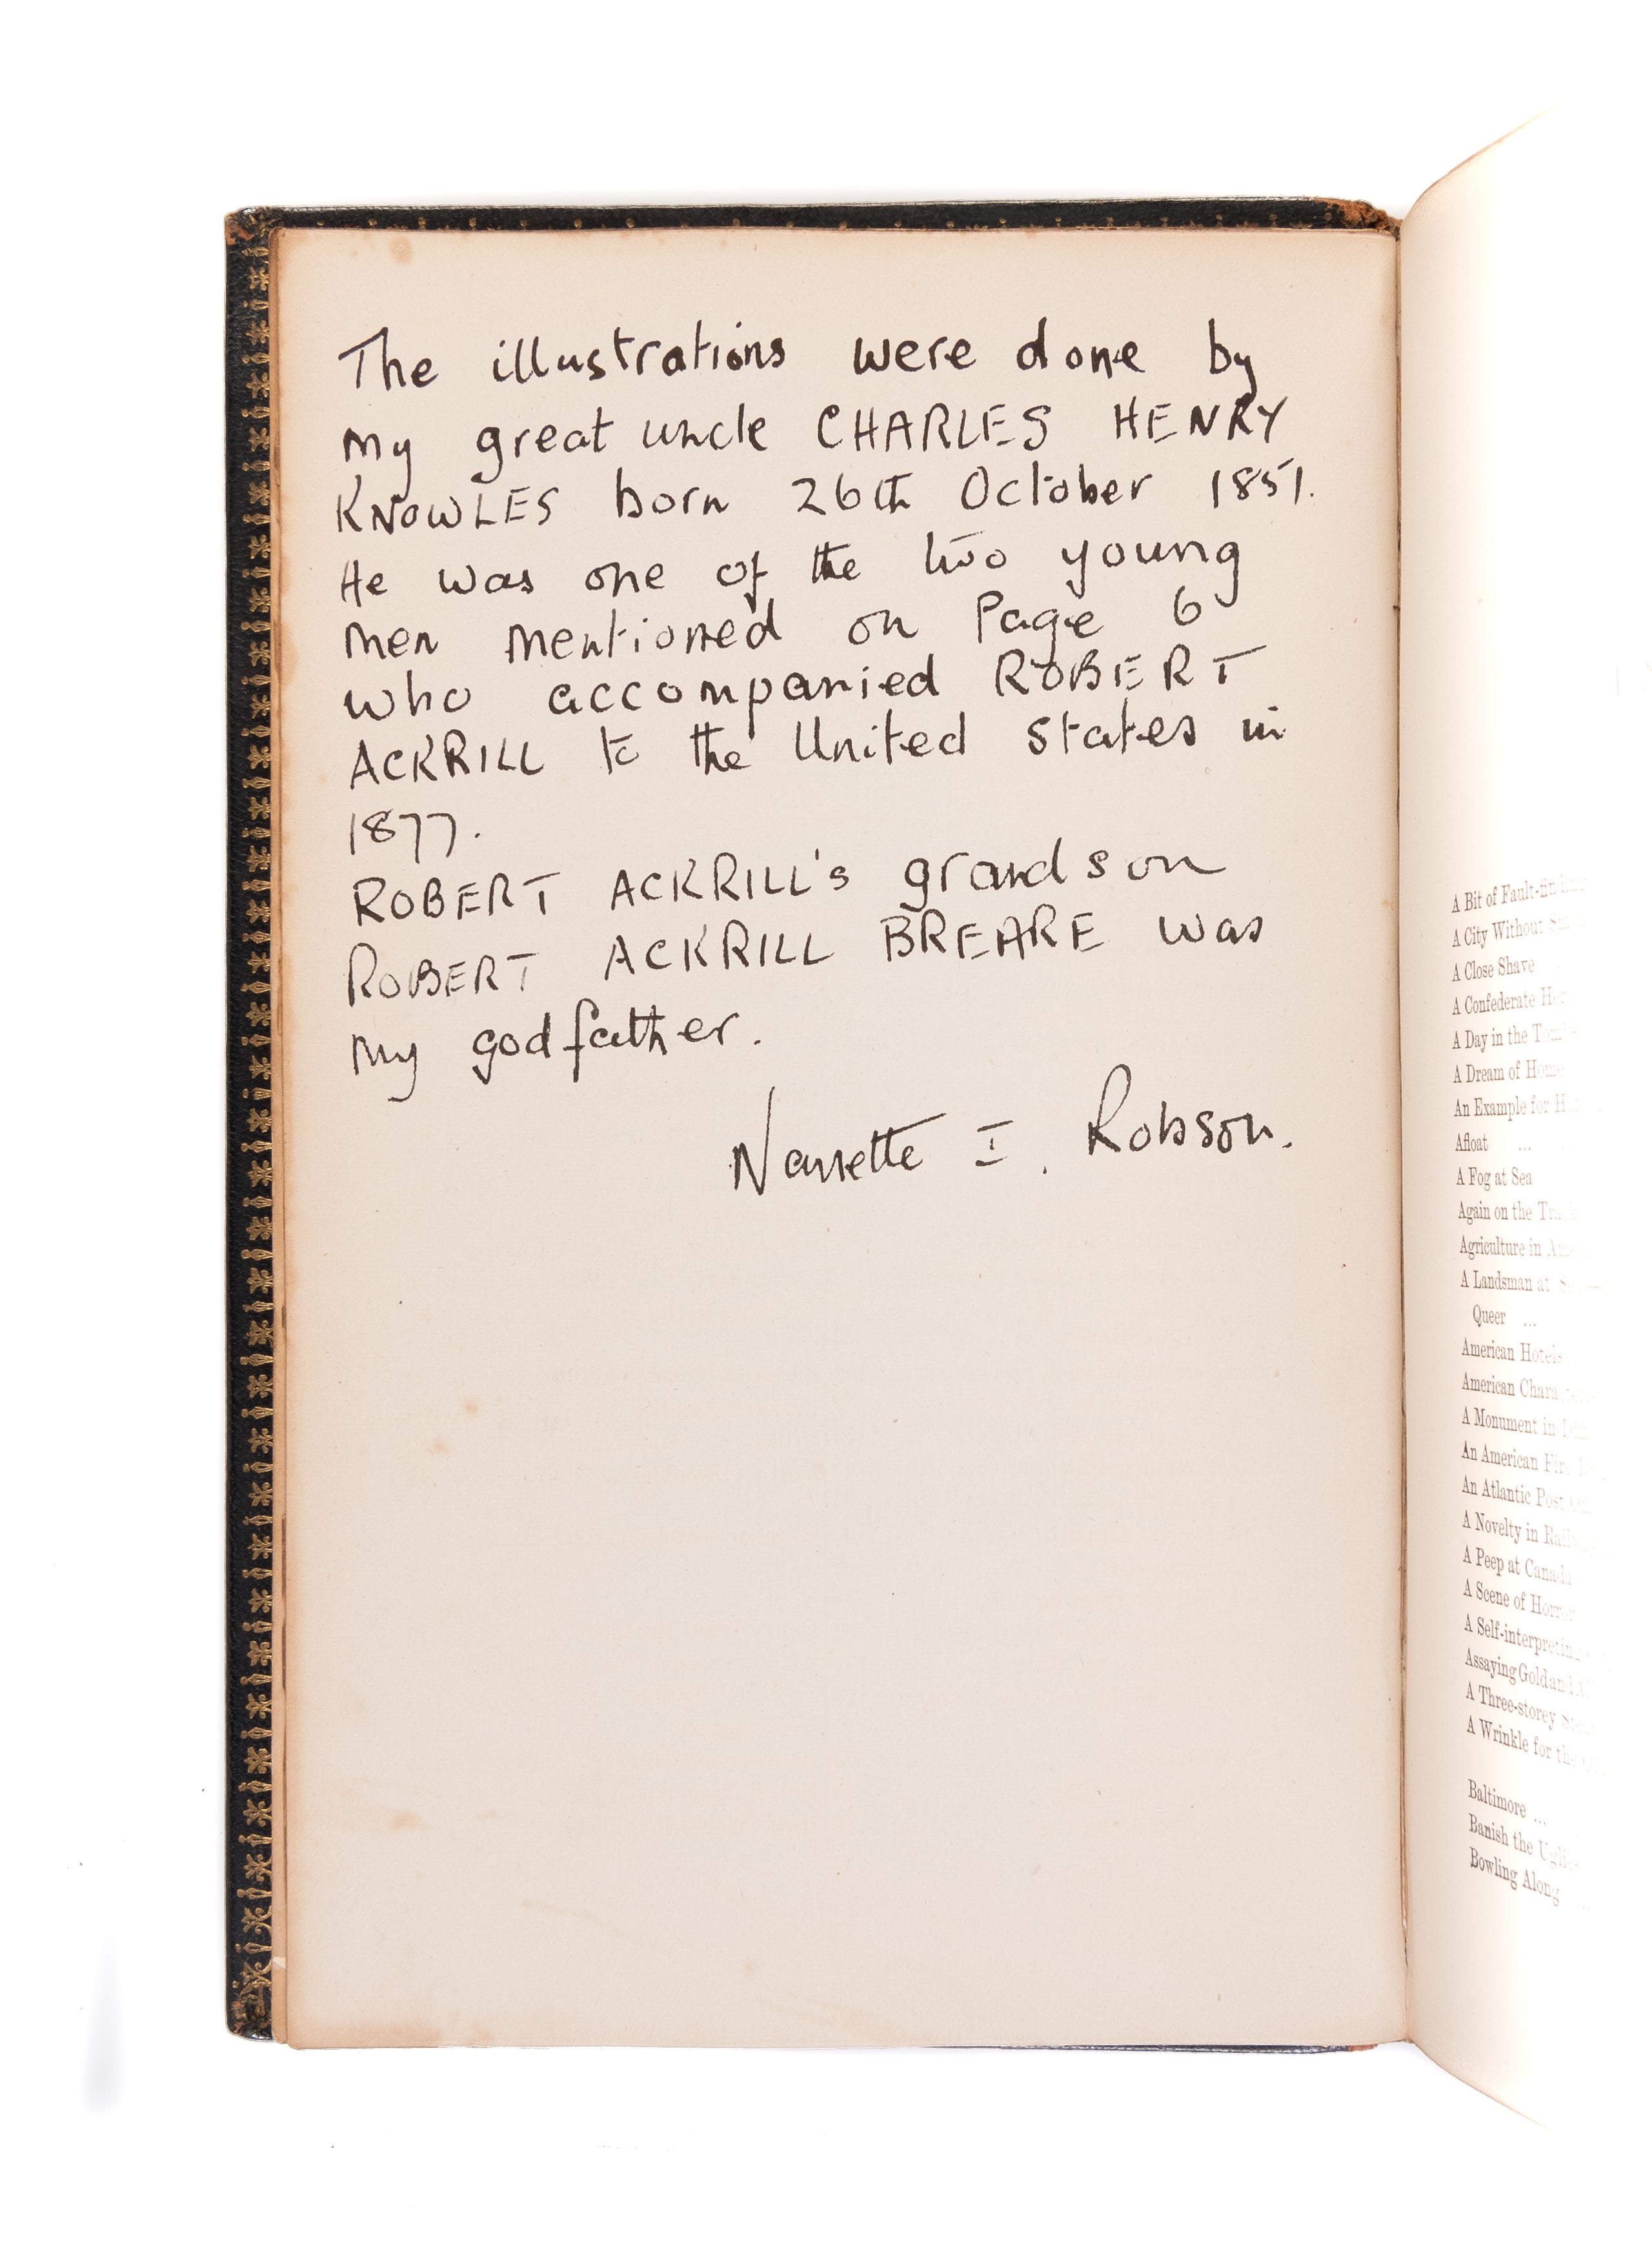 The illustrations were done by
my great uncle CHARLES HENRY
KNOWLES born 26th October 1851.
He was one of the two young
men mentioned on Page 6
who accompanied ROBERT
ACKRILL to the United States in
1877.
ROBERT ACKRILL's grandson
ROBERT ACKRILL BREARE was
my godfather.
Nanette I. Robson.
A Bit of
A City Without
A Close Shave
A Confederate
A Day in the
A Dream of
An Example for
Afloat ...
A Fog at Sea
Again on the
Agriculture in
A Landsman at
Queer ...
American Hotels
American
A Monument in
An American
An Atlantic
A Novelty in
A Peep at
A Scene of
A
Assaying Gold
A Three-storey
A Wrinkle for
Baltimore ...
Banish the
Bowling Along ...